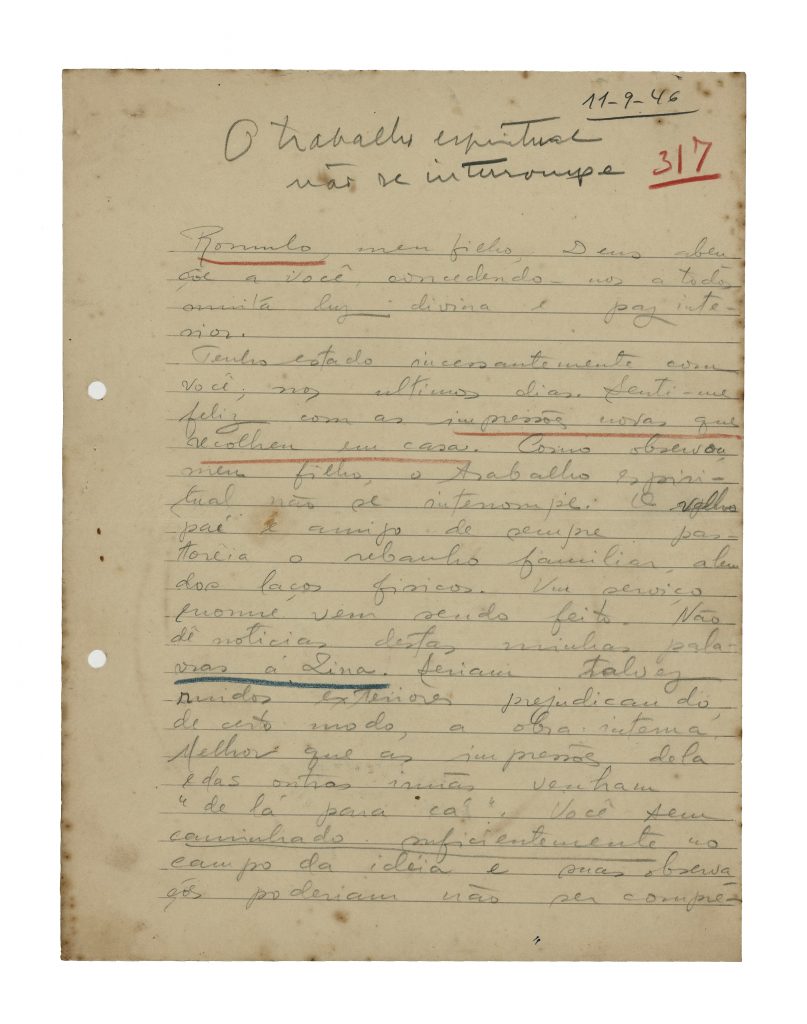 11-9-46
O trabalho espiritual
não se interrompe
317
Romulo, meu filho, Deus aben
çõe a você, concedendo-nos a todos
muita luz divina e paz inte-
rior.
Tenho estado incessantemente com
você, nos ultimos dias. Senti-me
feliz com as impressões novas que
recolheu em casa. Como observou,
meu filho, o trabalho espiri-
tual não se interrompe. O velho
pai e amigo de sempre pas-
toreia o rebanho familiar, alem
dos laços fisicos. Um serviço
enorme vem sendo feito. Não
dê noticias destas minhas pala-
vras á Zina. Seriam talvez
ruidos exteriores prejudicando,
de certo modo, a obra interna.
Melhor que as impressões dela
e das outras irmãs venham
"de lá para cá". Você tem
caminhado suficientemente no
campo da idéia e suas observa
ções poderiam não ser compre-